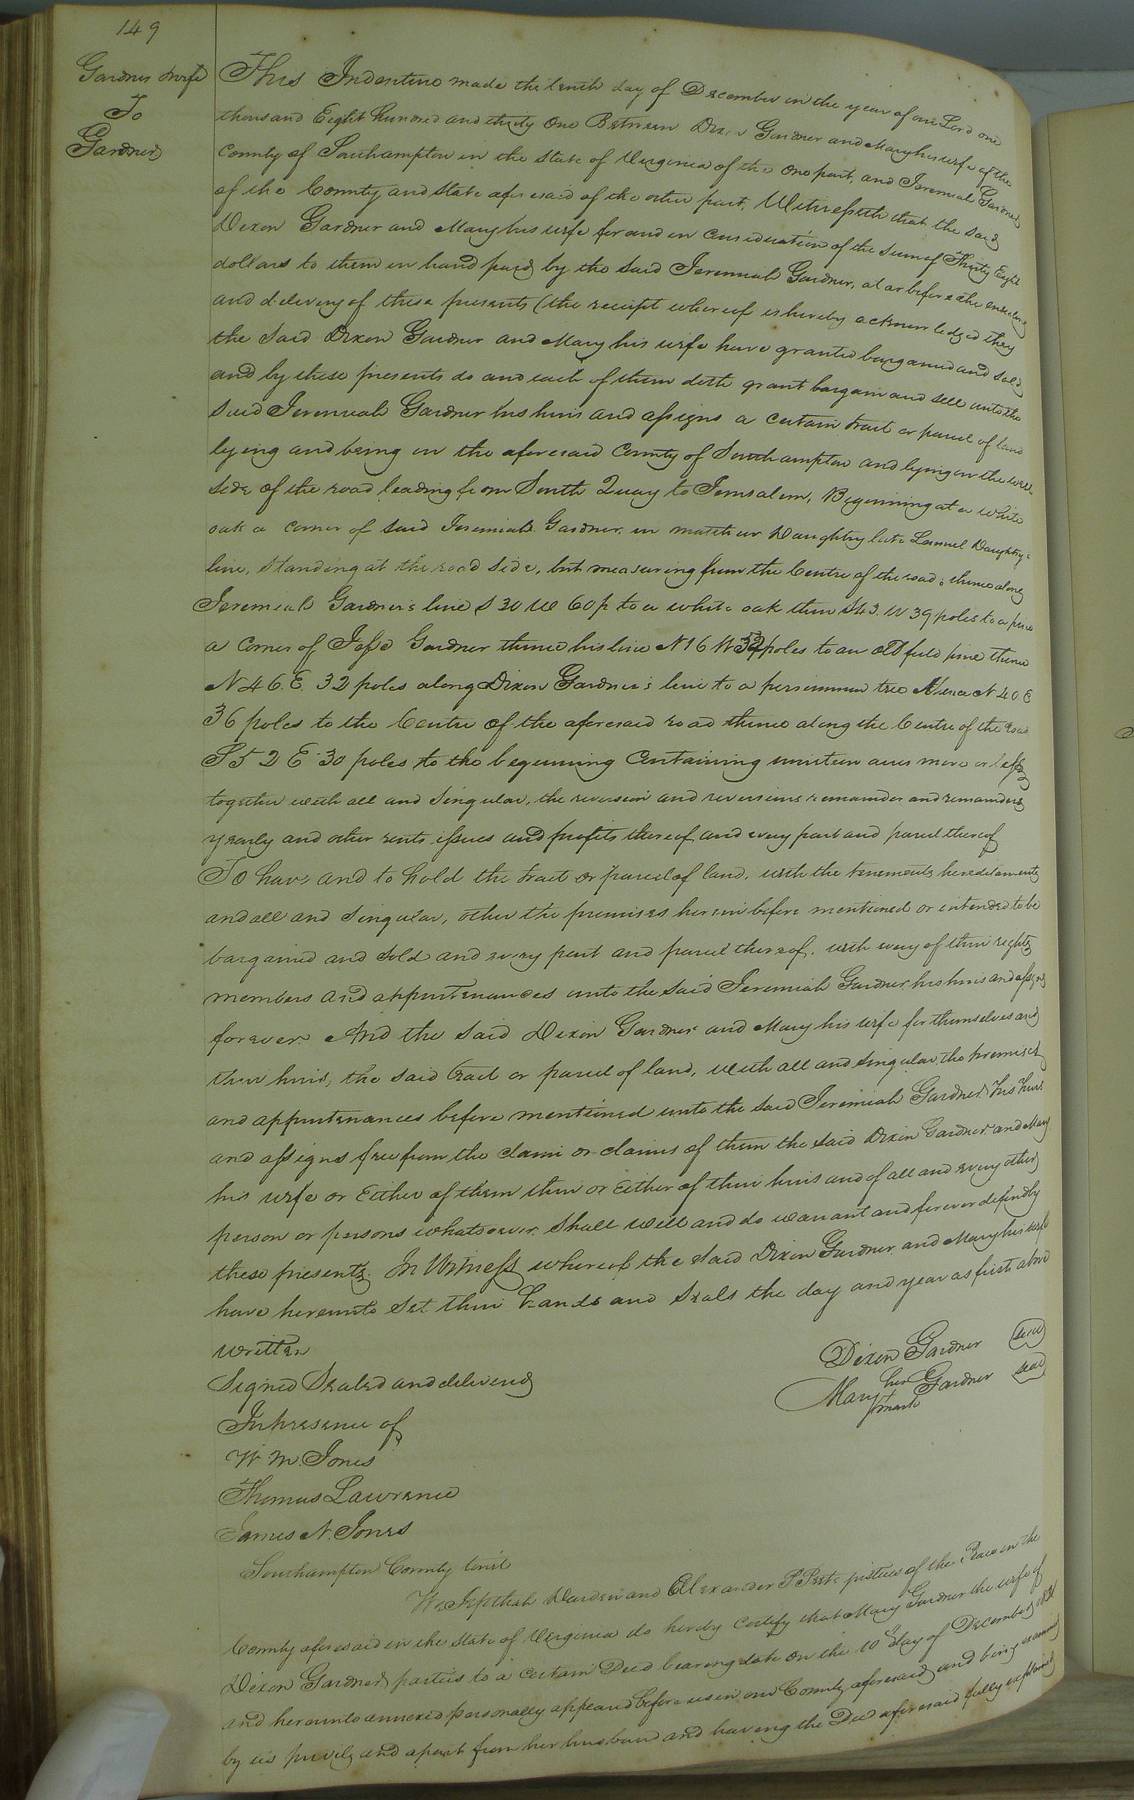 149
Gardner & wife
To
Gardner
This Indenture made the tenth day of December in the year of our Lord one
thousand Eight hundred and thirty One Between Dixon Gardner and Mary his wife of the
County of Southampton in the State of Virginia of the One part, and Jeremiah Gardner
of the County and State aforesaid of the other part, Witnesseth that the said
Dixon Gardner and Mary his wife for and in consideration of the sum of Thirty Eight
dollars to them in hand paid by the said Jeremiah Gardner, at or before the ensealing
and delivery of these presents (the receipt whereof is hereby acknowledged they
the said Dixon Gardner and Mary his wife have granted bargained and sold
and by these presents do and each of them doth grant bargain and sell unto the
said Jeremiah Gardner his heirs and assigns a certain tract or parcel of land
lying and being in the aforesaid County of Southampton and lying on the west
side of the road leading from South Quay to Jerusalem, Beginning at a white
oak a corner of said Jeremiah Gardner in Matthew Daughtry late Lemuel Daughtry's
line, standing at the road side, but measuring from the Centre of the road, thence along
Jeremiah Gardner's line S 30 W 60 p to a white oak then S 43. W 39 poles to a pine
a corner of Jesse Gardner thence his line N 16 W poles to an old field pine thence
N 46. E. 32 poles along Dixon Gardner's line to a persimmon tree thence N 40 E
36 poles to the Centre of the aforesaid road thence along the Centre of the road
S 52 E 30 poles to the beginning Containing nineteen acres more or less
together with all and singular, the reversion and reversions remainder and remainders
yearly and other rents issues and profits thereof and every part and parcel thereof
To have and to hold the tract or parcel of land, with the tenements hereditaments
and all and singular, other the premises herein before mentioned or intended to be
bargained and sold and every part and parcel thereof, with every of their rights
members and appurtenances unto the said Jeremiah Gardner his heirs and assigns
forever And the said Dixon Gardner and Mary his wife for themselves and
their heirs, the said tract or parcel of land, with all and singular the premises
and appurtenances before mentioned unto the said Jeremiah Gardner his heirs
and assigns free from the claim or claims of them the said Dixon Gardner and Mary
his wife or Either of them their or Either of their heirs and of all and every other
person or persons whatsoever Shall will and do warrant and forever defend by
these presents. In Witness whereof the said Dixon Gardner and Mary his wife
have hereunto set their hands and seals the day and year as first above
written
Dixon Gardner seal
Signed Sealed and delivered
her
Mary Gardner seal
mark
In presence of
W. M. Jones
Thomas Lawrence
James N. Jones
Southampton County Court
We Jepthah Darden and Alexander P Peete justices of the Peace in the
County aforesaid in the State of Virginia do hereby certify that Mary Gardner the wife of
Dixon Gardner parties to a certain Deed bearing date on the 10 day of December 1831
and hereunto annexed personally appeared before us in our County aforesaid and being examined
by us privily and apart from her husband and having the Deed aforesaid fully explained